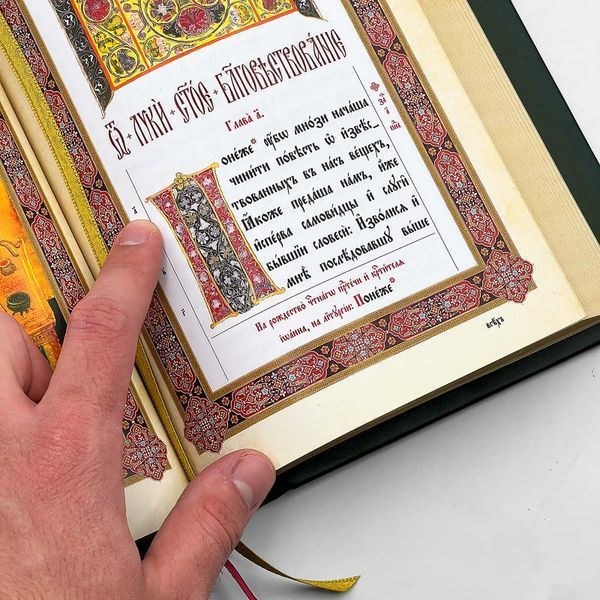 Ѿ лꙋкѝ ст҃о́е бл҃говѣствова́нїе
Глава̀ а҃.
Поне́же* ᲂу҆́бѡ мно́зи нача́ша
чини́ти по́вѣсть ѡ҆ и҆звѣ́-
ствованныхъ въ на́съ ве́щехъ,
ꙗ҆́коже преда́ша на́мъ, и҆̀же
и҆спе́рва самови́дцы и҆ слꙋги̑
бы́вшїи словесѐ: и҆зво́лисѧ и҆
мнѣ̀ послѣ́довавшꙋ вы́ше
На рождество̀ чⷭ҇тна́гѡ прⷣте́чи и҆ крⷭ҇ти́телѧ
і҆ѡа́нна, на лїтꙋргі́и: Поне́же*
всѣ̑хъ